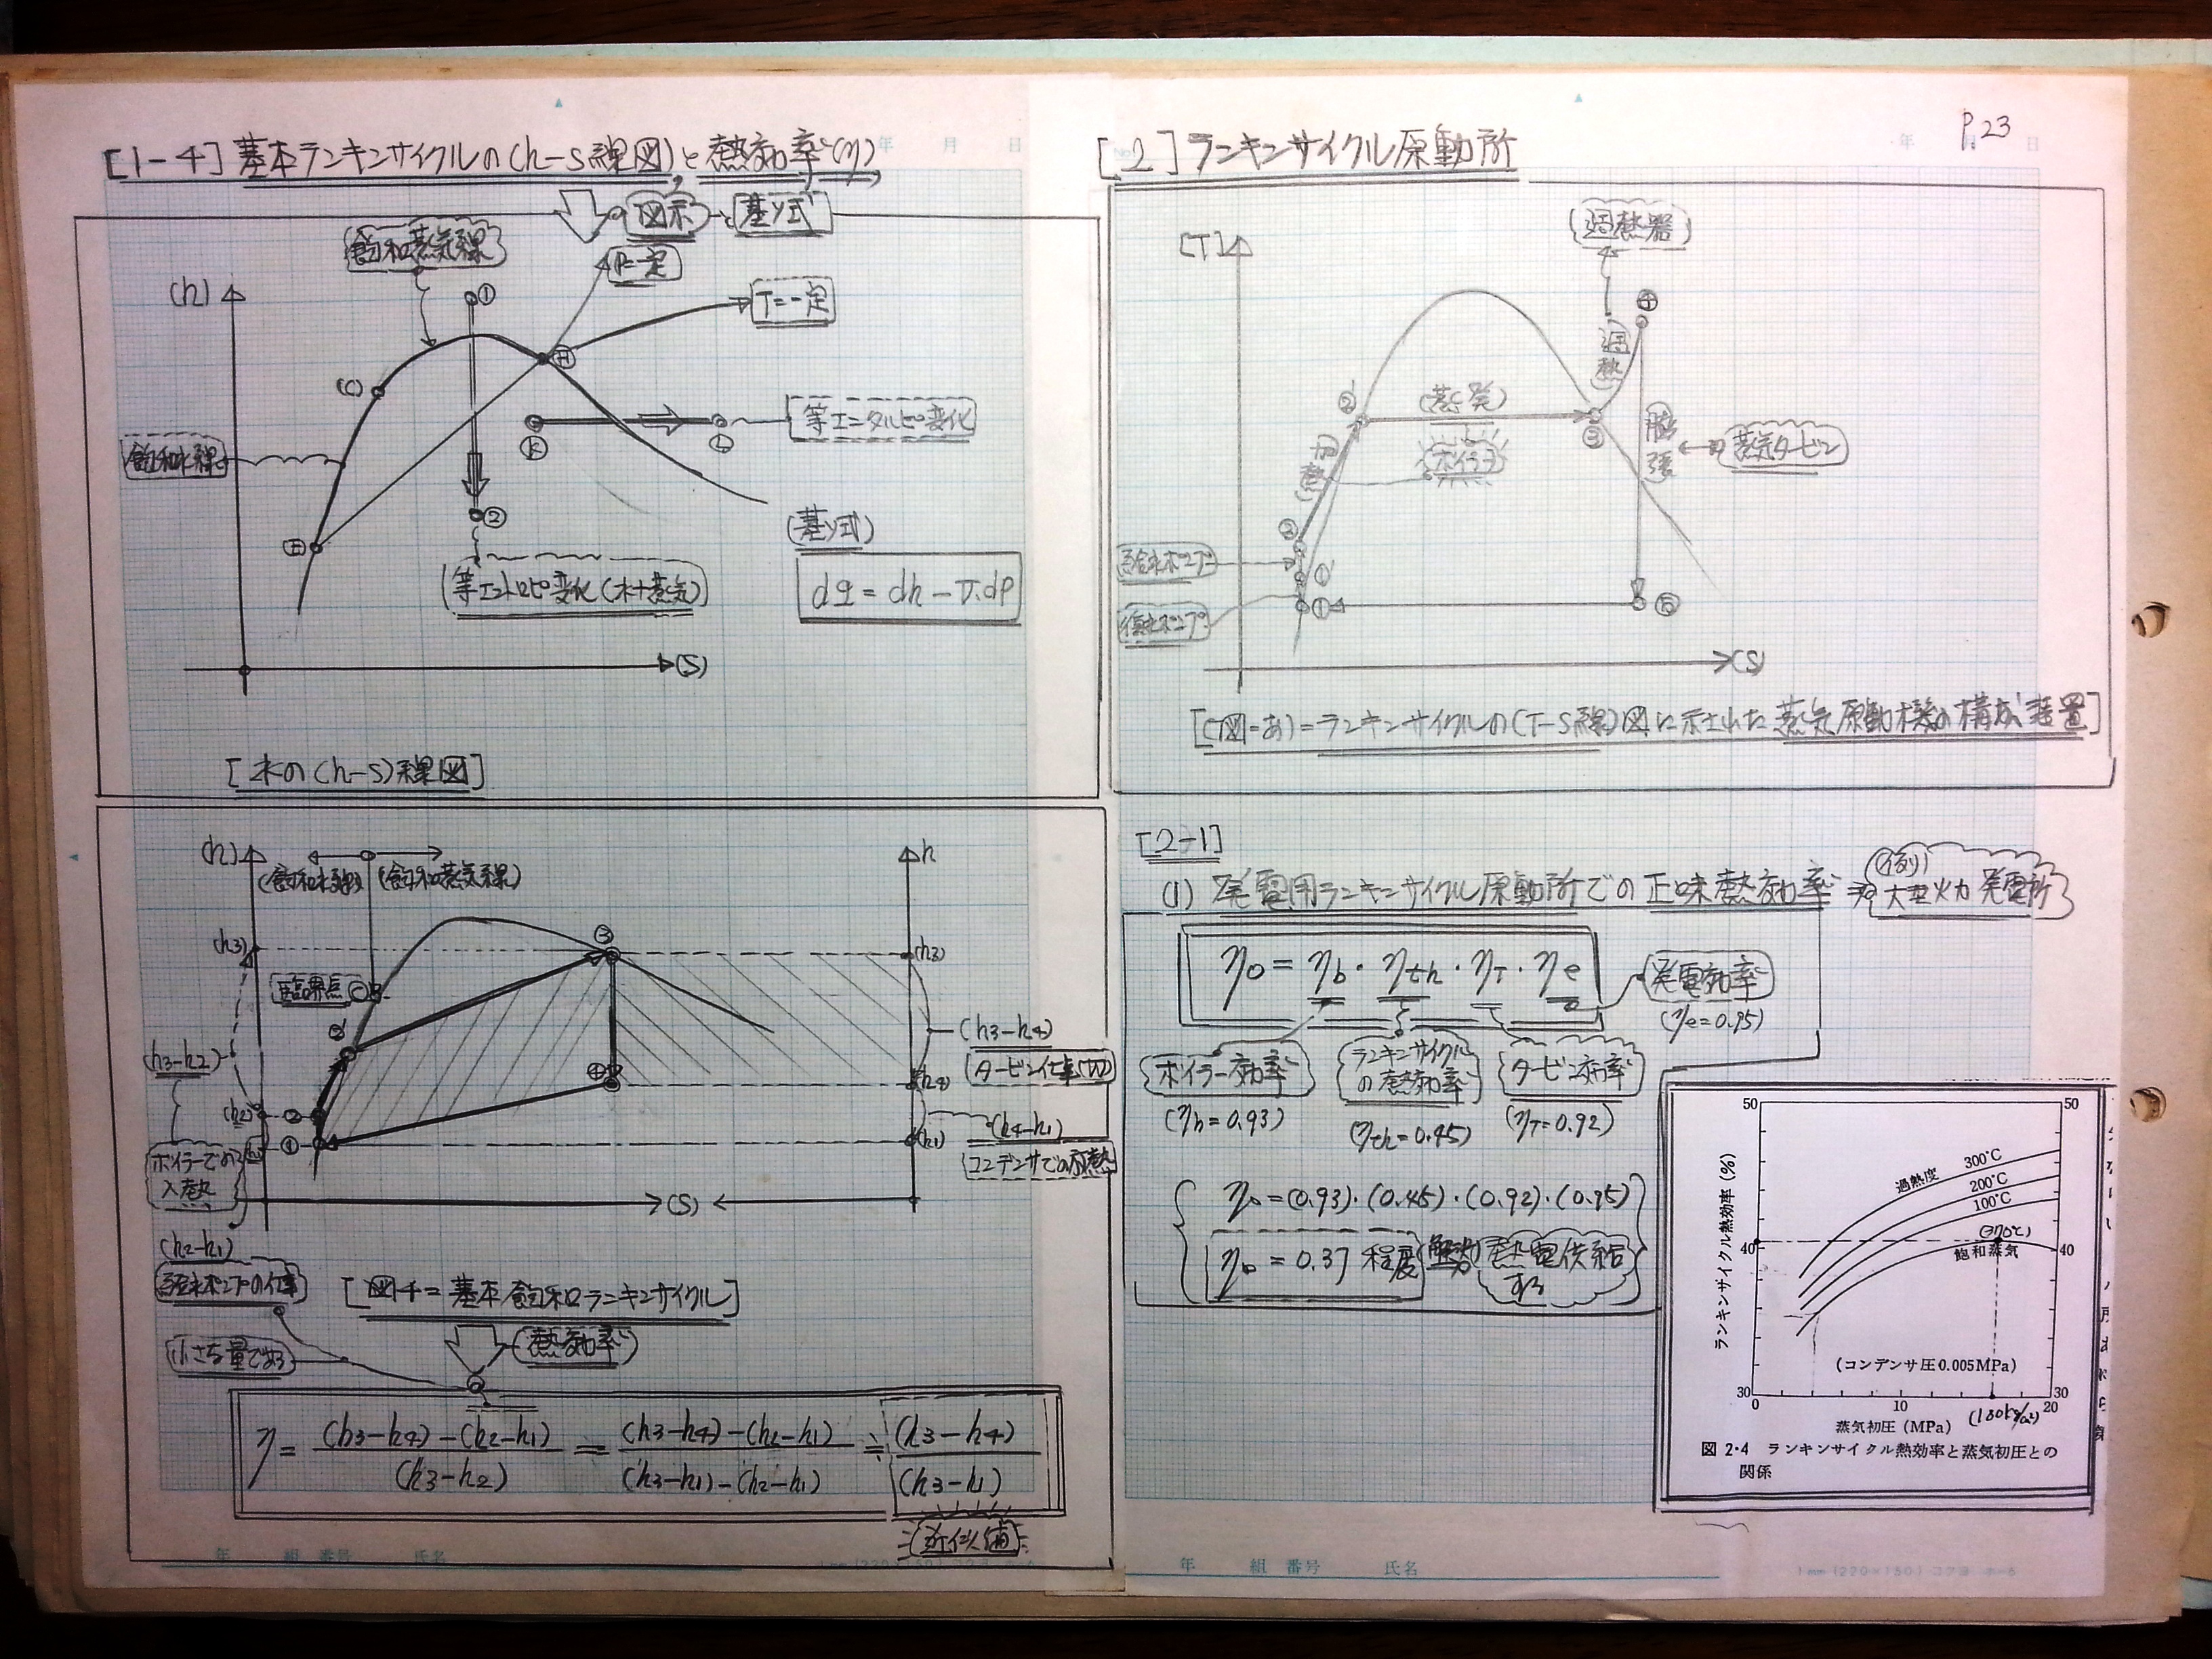 [1-4] 基本ランキンサイクルの(h-s線図)と熱効率(η)
図示
基本式
飽和蒸気線
P=一定
(h)
①
T=一定
(C)
飽和水線
等エンタルピ変化
②
等エントロピ変化(水+蒸気)
(基本式)
dq = dh - v.dp
(S)
[水の(h-s)線図]
(h)
(飽和水線)
(飽和蒸気線)
h
(h3)
③
(h3)
臨界点
2'
(h3-h2)
(h3-h4)
タービン仕事(W)
④
(h4)
(h2)
②
①
(h1)
(h4-h1)
コンデンサでの放熱
ボイラーでの
入熱
(S)
(h2-h1)
給水ポンプの仕事
[図4=基本飽和ランキンサイクル]
(熱効率)
小さな量である
η = (h3-h4)-(h2-h1) / (h3-h2) = (h3-h4)-(h2-h1) / (h3-h1)-(h2-h1) ≒ (h3-h4) / (h3-h1)
近似値
年 組 番号 氏名
P.23
[2] ランキンサイクル原動所
年 月 日
過熱器
[T]
④
過熱
2'
(蒸発)
③
ボイラ
加熱
膨張
蒸気タービン
②
給水ポンプ
①'
復水ポンプ
①
⑤
(S)
[(図=あ)=ランキンサイクルの(T-S線)図に示された蒸気原動機の構成装置]
[2-1]
(1) 発電用ランキンサイクル原動所での正味熱効率
(例)
大型火力発電所
ηo = ηb・ηth・ηT・ηe
発電効率
(ηe=0.95)
ボイラー効率
(ηb=0.93)
ランキンサイクル
の熱効率
(ηth=0.45)
タービン効率
(ηT=0.92)
ηo = (0.93)・(0.45)・(0.92)・(0.95)
ηo = 0.37 程度
熱電供給
する
50
50
ランキンサイクル熱効率(%)
過熱度
300°C
200°C
100°C
40
飽和蒸気
40
(コンデンサ圧0.005MPa)
30
30
0
10
20
蒸気初圧(MPa)
図 2・4 ランキンサイクル熱効率と蒸気初圧との
関係
年 組 番号 氏名